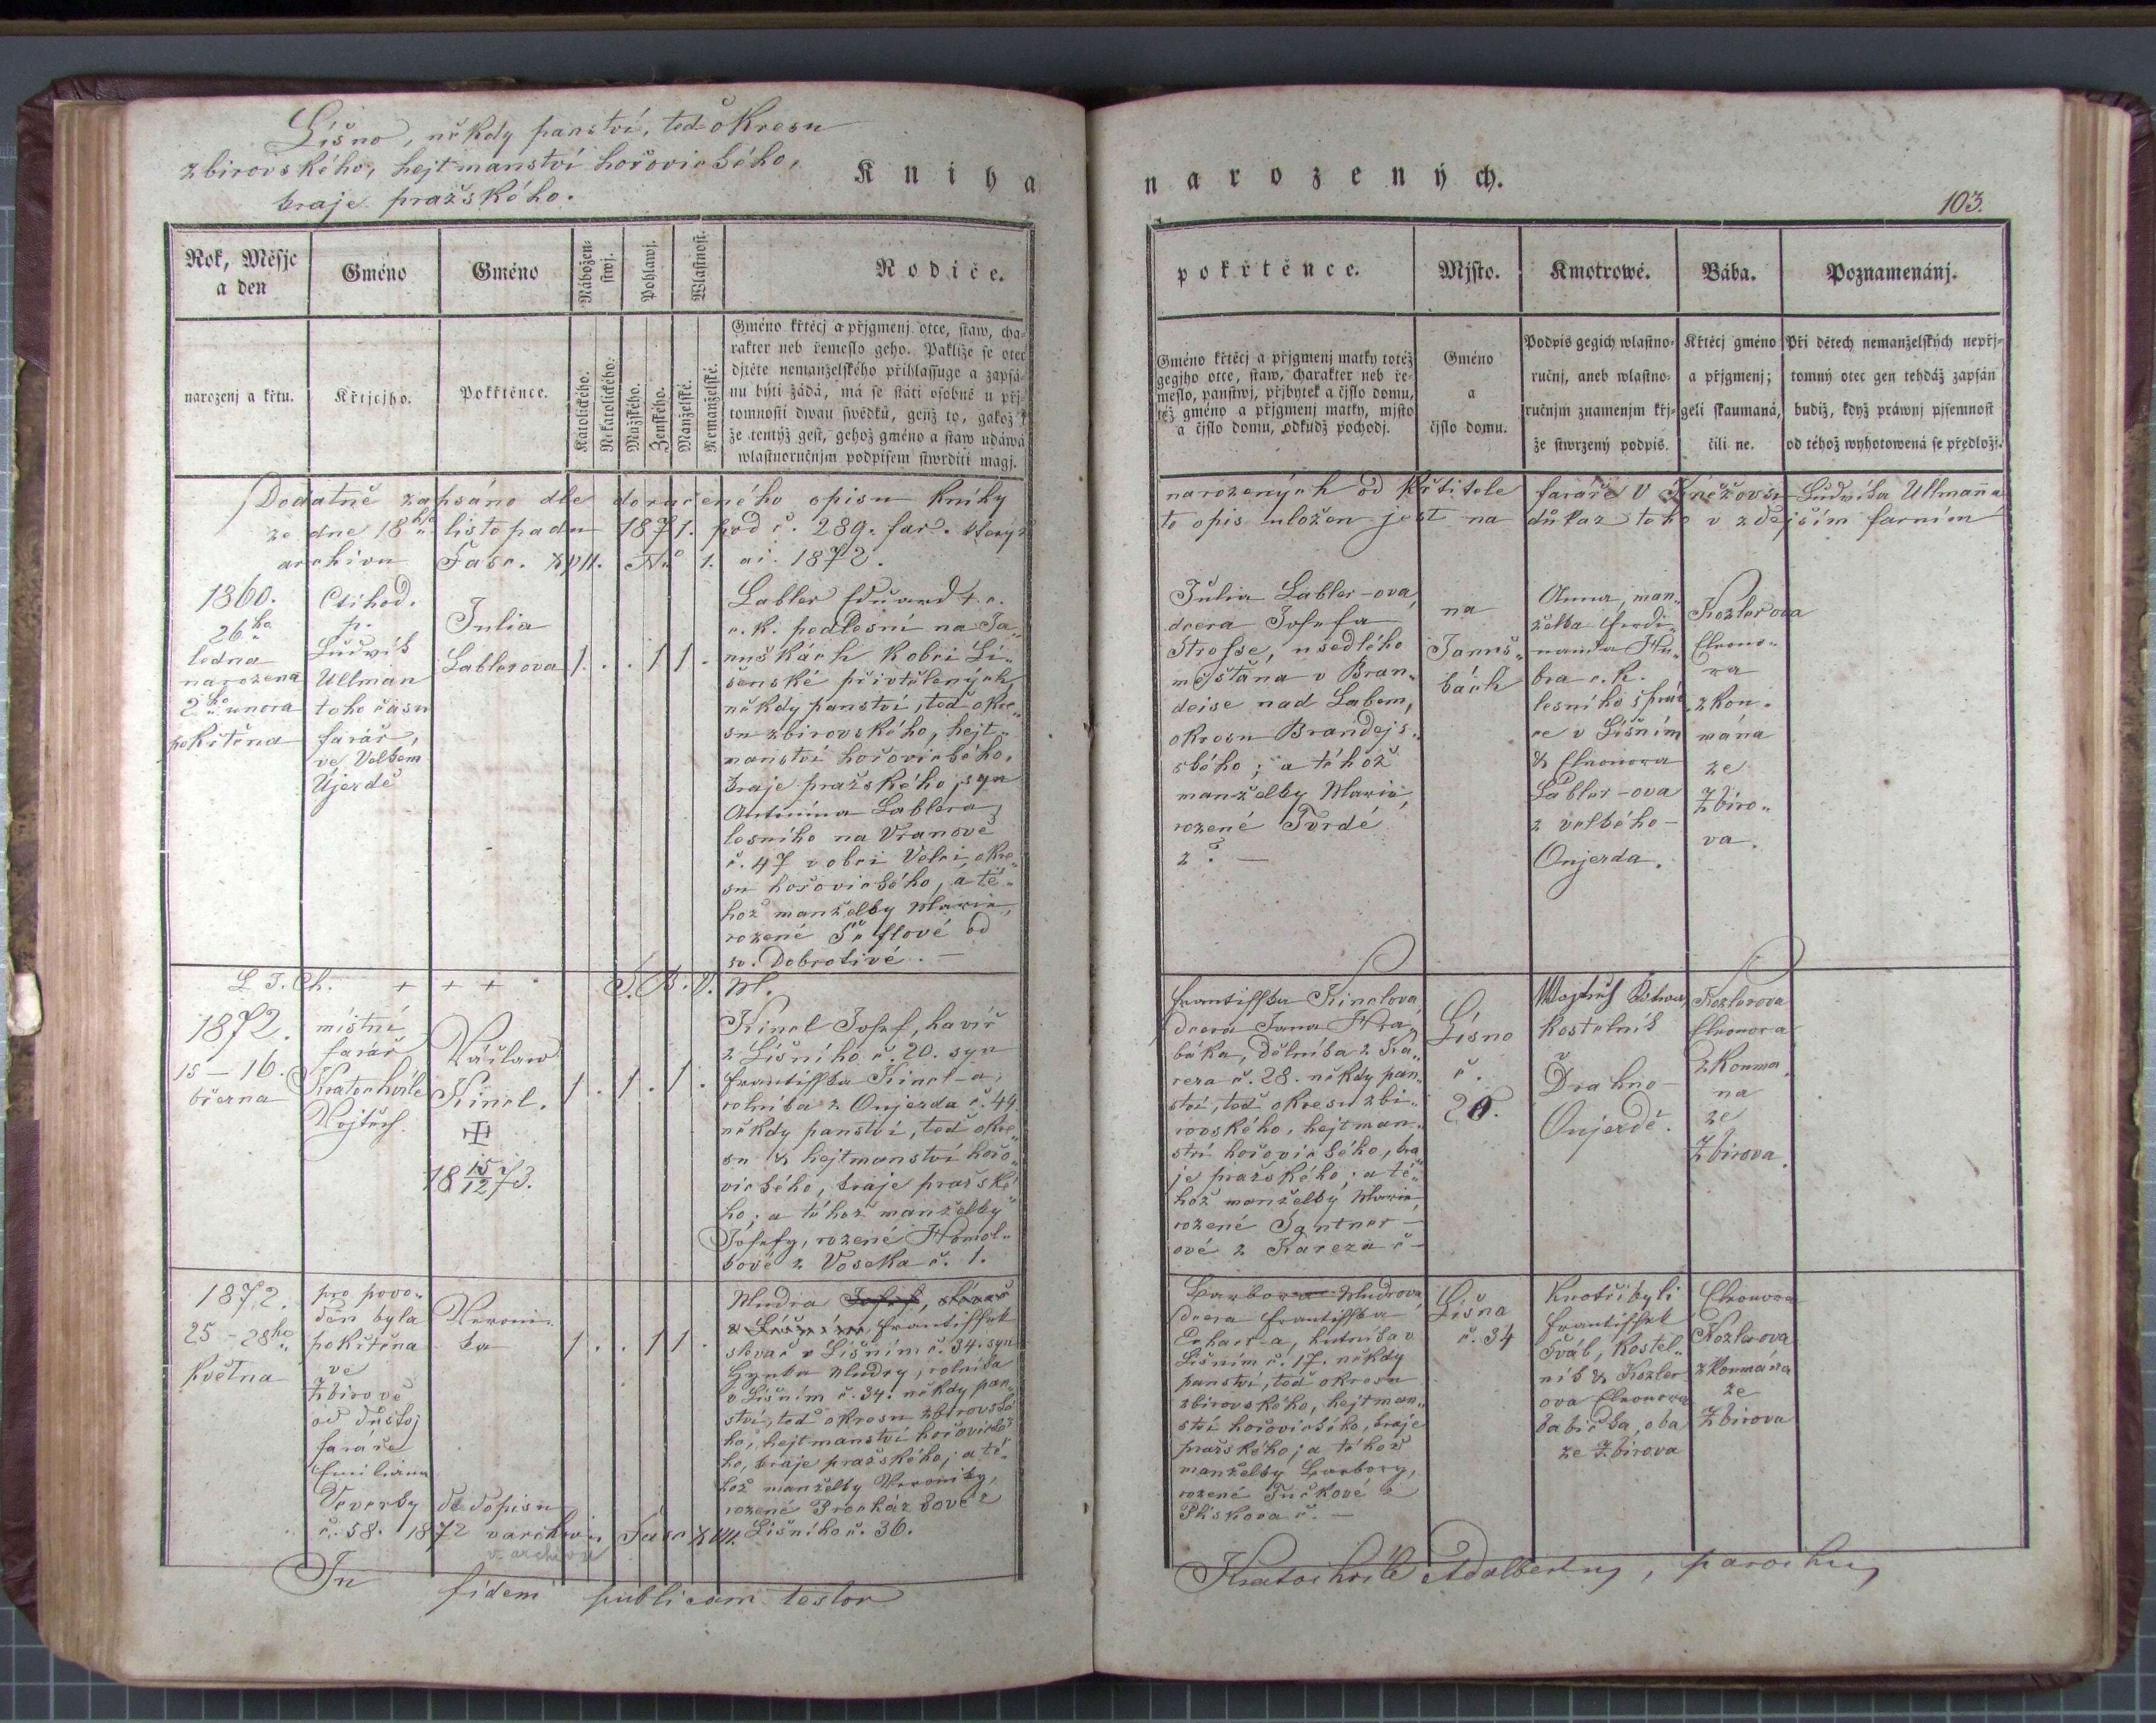 Líšno, někdy panství, teď okresu
zbirovského, hejtmanství hořovického,
kraje pražského.
Kniha
narozených.
103.
Rok, Měsjc
a den
Gméno
Gméno
Nábožen-
stwj.
Pohlawj.
Wlastnost.
Rodiče.
narozenj a křtu.
Křtjcjho.
Pokřtěnce.
Katolického.
Nekatolického.
Mužského.
Ženského.
Manželské.
Nemanželské.
Gméno křtěcj a přjgmenj otce, staw, cha-
rakter neb řemeslo geho. Pakliže se otec
djtěte nemanželského přihlassuge a zapsá-
nu býti žádá, má se státi osobně u přj-
tomnosti dwau swědků, genž to, gakož i
že tentýž gest, gehož gméno a staw udáwá
wlastnoručnjm podpisem stwrditi magj.
pokřtěnce.
Mjsto.
Kmotrowé.
Bába.
Poznamenánj.
Gméno křtěcj a přjgmenj matky totéž
gegjho otce, staw, charakter neb ře-
meslo, panstwj, přjbytek a čjslo domu,
též gméno a přjgmenj matky, mjsto
a čjslo domu, odkudž pochodj.
Gméno
a
čjslo domu.
Podpis gegich wlastno-
ručnj, aneb wlastno-
ručnjm znamenjm křj-
že stwrzený podpis.
Křtěcj gméno
a přjgmenj;
geli skaumaná,
čili ne.
Při dětech nemanželských nepřj-
tomný otec gen tehdáž zapsán
budiž, když práwnj pjsemnost
od téhož wyhotowená se předložj.
Dodatně zapsáno dle doručeného opisu knihy
narozených od křtitele faráře v Kněžovsi Ludvíka Ullmanna
ze dne 18ho listopadu 1871. pod č. 289. far. kterýž
to opis uložen jest na důkaz toho v zdejším farním
archivu Fasc. XVII. No 1. ai. 1872.
1860.
26ho
ledna
narozena
2ho února
pokřtěna
Ctihod.
p.
Ludvík
Ullman
toho času
farář,
ve Velkem
Újezdě
Julia
Lablerova
1. . . 1 1 .
Labler Eduard t. c.
c. k. podlesní na Ja-
nuškách k obci Lí-
šenské přivtělených,
někdy panství, teď okre-
su zbirovského, hejt-
manství hořovického,
kraje pražského, syn
Antonína Lablera,
lesního na Vranově
č. 47 v obci Velci, okre-
su hořovického, a té-
hož manželky Marie,
rozené od
sv. Dobrotivé. —
Julia Labler-ova,
dcera Josefa
Strosse, usedlého
měšťana v Bran-
deise nad Labem,
okresu Brandejs-
kého; a téhož
manželky Marie,
rozené Tvrdé
z č. —
na
Januš-
kách
Anna, man-
želka Ferdi-
nanda Hu-
bra c. k.
lesního správ-
ce v Líšním
& Eleonora
Labler-ova
z velkého
Oujezda.
Kozlerova
Eleono-
ra
zkou-
mána
ze
Zbiro-
va.
L. J. Ch. + + + S. B. V. M.
1872.
15 – 16.
března
místní
farář
Kratochvíle
Vojtěch.
Václaw
Kincl.
18 15/12 73.
1. 1. 1.
Kincl Josef, havíř
z Líšního č. 20. syn
Františka Kincl-a,
rolníka z Oujezda č. 44
někdy panství, teď okre-
su & hejtmanství hořo-
vického, kraje pražské-
ho; a téhož manželky
Josefy, rozené Homol-
kové z Voseka č. 1.
Františka Kinclová
dcera Jana Hra-
báka, dělníka z Ka-
reza č. 28. někdy pan-
ství, teď okresu zbi-
rovského, hejtman-
ství hořovického, kra-
je pražského; a té-
hož manželky Marie,
rozené Santner-
ové z Kareza č —
Líšno
č.
20.
Wojtěch
kostelník
z
Drahno-
Oujezdě.
Kozlerova
Eleonora
zkouma-
na
ze
Zbirova.
1872.
25 – 28ho
května
pro povo-
deň byla
pokřtěna
ve
Zbirově
od důstoj
faráře
Emiliana
Veverky dle dopisu
č. 58. 1872 v archivu Fasc XVII.
v archivu
Veroni-
ka
1 . . 1 1 .
Mudra Josef, slevač
z Líšního, František
slevač v Líšním č. 34. syn
Hynka Mudry, rolníka
v Líšním č. 34. někdy pan-
ství, teď okresu zbirovské-
ho, hejtmanství hořovické-
ho, kraje pražského; a té-
hož manželky Veroniky,
rozené Procházkové z
Líšního č. 36.
Barbora Mudrova
dcera Františka
Erhart-a, hutníka v
Líšním č. 17. někdy
panství, teď okresu
zbirovského, hejtman-
ství hořovického, kraje
pražského; a téhož
manželky Barbory,
rozené Tučkové z
Plískova č. —
Líšna
č. 34
Kmotři byli
František
Šváb, kostel-
ník & Kozler-
ova Eleonora
babička, oba
ze Zbirova
Eleonora
Kozlerova
zkoumána
ze
Zbirova
In fidem publicam testor
Kratochvíle Adalbertus, parochus